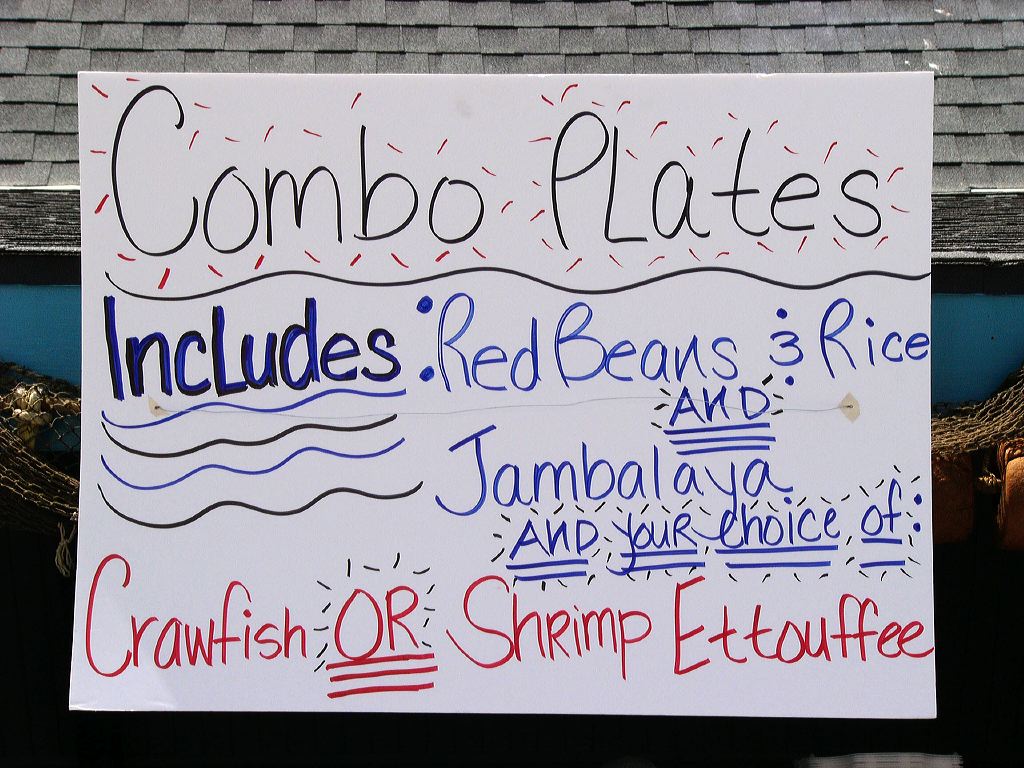 Combo PLates
IncLudes: Red Beans & Rice
AND
Jambalaya
AND youR choice of:
Crawfish OR Shrimp Ettouffee